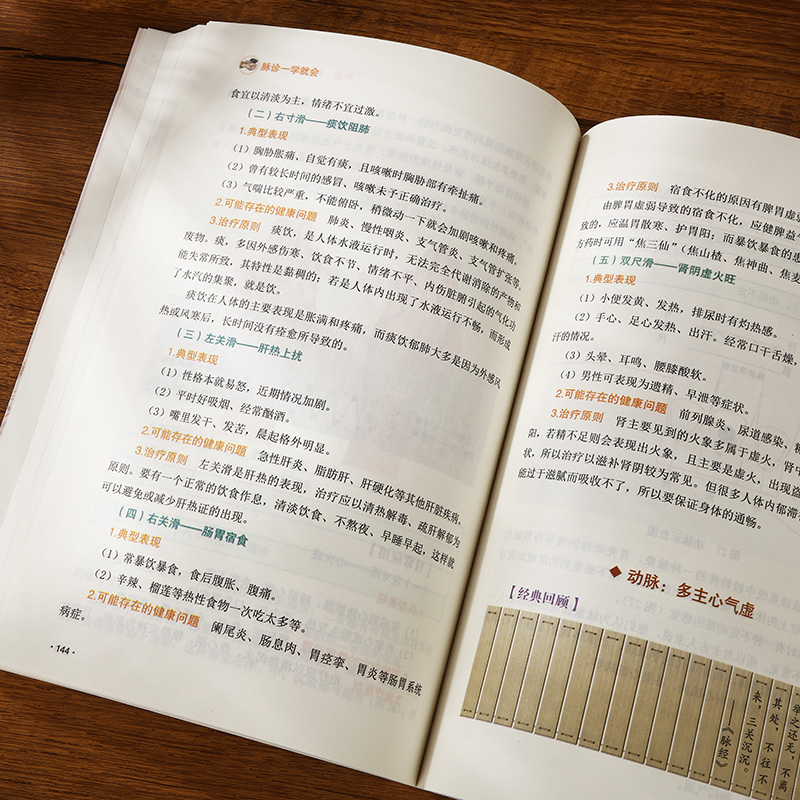 脉诊一学就会
食宜以清淡为主，情绪不宜过激。
（二）右寸滑——痰饮阻肺
1.典型表现
（1）胸胁胀痛、自觉有痰，且咳嗽时胸胁部有牵扯痛。
（2）曾有较长时间的感冒、咳嗽未予正确治疗。
（3）气喘比较严重，不能俯卧，稍微动一下就会加剧咳嗽和疼痛。
2.可能存在的健康问题 肺炎、慢性咽炎、支气管炎、支气管扩张等。
3.治疗原则 痰饮，是人体水液运行时，无法完全代谢消除的产物和
废物。痰，多因外感伤寒、饮食不节、情绪不平、内伤脏腑引起的气化功
能失常所致，其特性是黏稠的；若是人体内出现了水液运行不畅，而形成
了水汽的集聚，就是饮。
痰饮在人体的主要表现是胀满和疼痛，而痰饮郁肺大多是因为外感风
热或风寒后，长时间没有痊愈所导致的。
（三）左关滑——肝热上扰
1.典型表现
（1）性格本就易怒，近期情况加剧。
（2）平时好吸烟、经常酗酒。
（3）嘴里发干、发苦，晨起格外明显。
2.可能存在的健康问题 急性肝炎、脂肪肝、肝硬化等其他肝脏疾病，
3.治疗原则 左关滑是肝热的表现，治疗应以清热解毒、疏肝解郁为
原则。要有一个正常的饮食作息，清淡饮食、不熬夜、早睡早起，这样就
可以避免或减少肝热证的出现。
（四）右关滑——肠胃宿食
1.典型表现
（1）常暴饮暴食，食后腹胀、腹痛。
（2）辛辣、榴莲等热性食物一次吃太多等。
2.可能存在的健康问题 阑尾炎、肠息肉、胃痉挛、胃炎等肠胃系统
病症。
·144·
3.治疗原则 宿食不化的原因有脾胃虚
由脾胃虚弱导致的宿食不化，应健脾益气
致的，应温胃散寒、护胃阳；而暴饮暴食的患
方药时可用“焦三仙”（焦山楂、焦神曲、焦麦
（五）双尺滑——肾阴虚火旺
1.典型表现
（1）小便发黄、发热，排尿时有灼热感。
（2）手心、足心发热、出汗。经常口干舌燥，
汗的情况。
（3）头晕、耳鸣、腰膝酸软。
（4）男性可表现为遗精、早泄等症状。
2.可能存在的健康问题 前列腺炎、尿道感染、
3.治疗原则 肾主要见到的火象多属于虚火，肾
阳，若精不足则会表现出火象，且主要是虚火，出现盗
状，所以治疗以滋补肾阴较为常见。但很多人体内郁滞
能过于滋腻而吸收不了，所以要保证身体的通畅。
◆ 动脉：多主心气虚
【经典回顾】
举之还无，不离
其处，不往不
来，三关沉沉。
——《脉经》